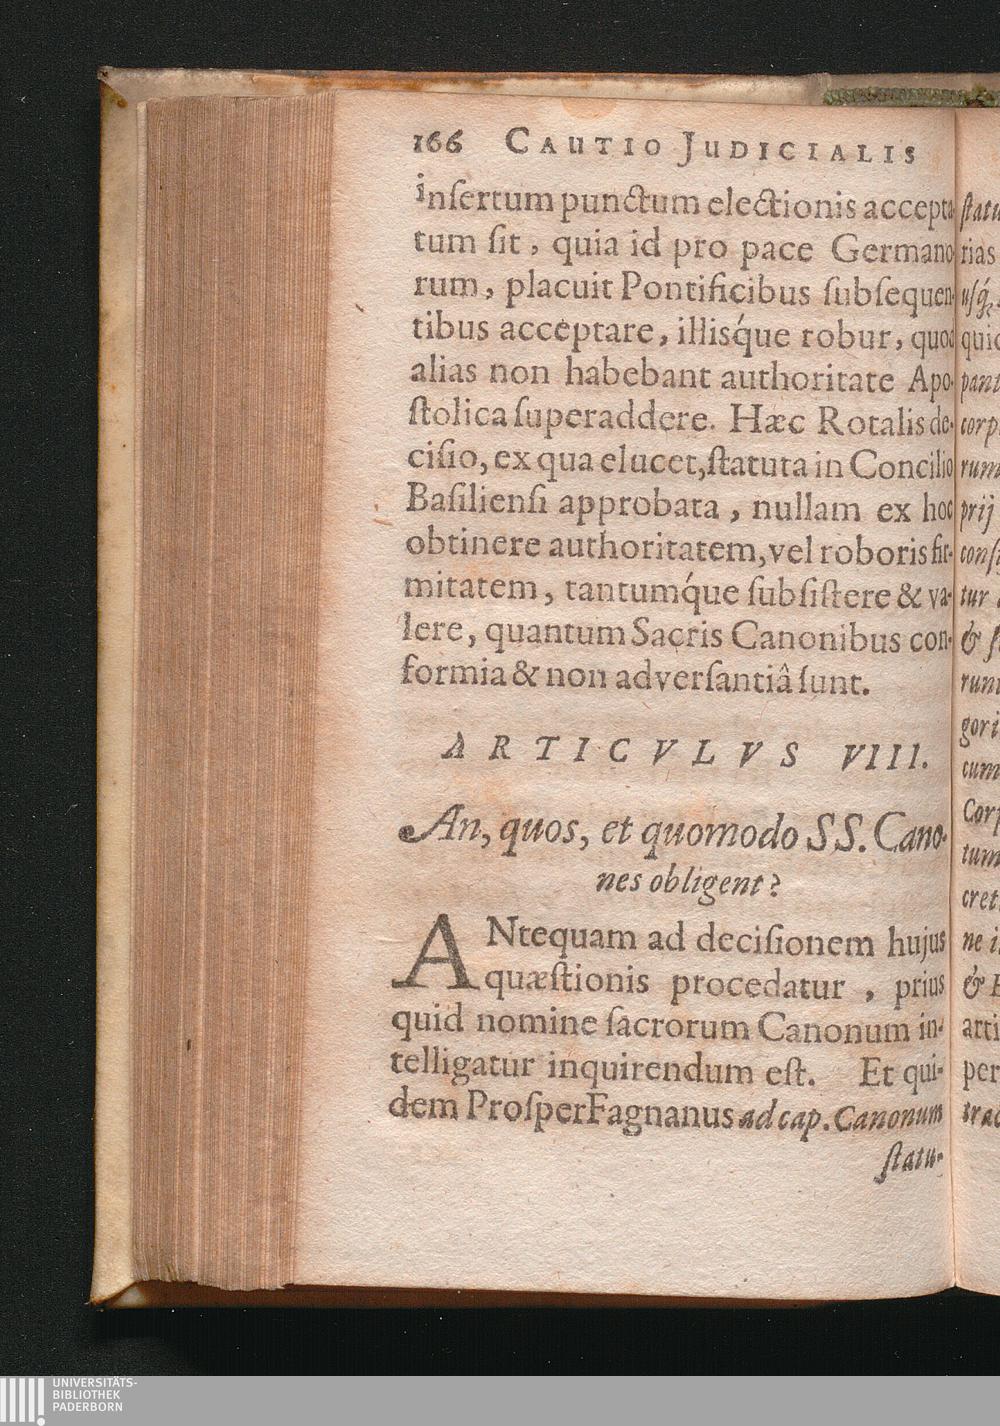 166 CAUTIO JUDICIALIS
inſertum punctum electionis accepta-
tum ſit, quia id pro pace Germano-
rum, placuit Pontificibus ſubſequen-
tibus acceptare, illisq́ue robur, quod
alias non habebant authoritate Apo-
ſtolica ſuperaddere. Hæc Rotalis de-
ciſio, ex qua elucet, ſtatuta in Concilio
Baſilienſi approbata, nullam ex hoc
obtinere authoritatem, vel roboris fir-
mitatem, tantumq́ue ſubſiſtere & va-
lere, quantum Sacris Canonibus con-
formia & non adverſantiâ ſunt.
ARTICVLVS VIII.
An, quos, et quomodo SS. Cano-
nes obligent?
ANtequam ad deciſionem hujus
quæſtionis procedatur, prius
quid nomine ſacrorum Canonum in-
telligatur inquirendum eſt. Et qui-
dem Proſper Fagnanus ad cap. Canonum
ſtatu-
ſtatu
rias
uſq́;
quid
pant
corp
rum
prij
conſt
tur
& ſt
rum
gori
cum
Corp
tum
cret
ne i
&
arti
per
trac
UNIVERSITÄTS-
BIBLIOTHEK
PADERBORN